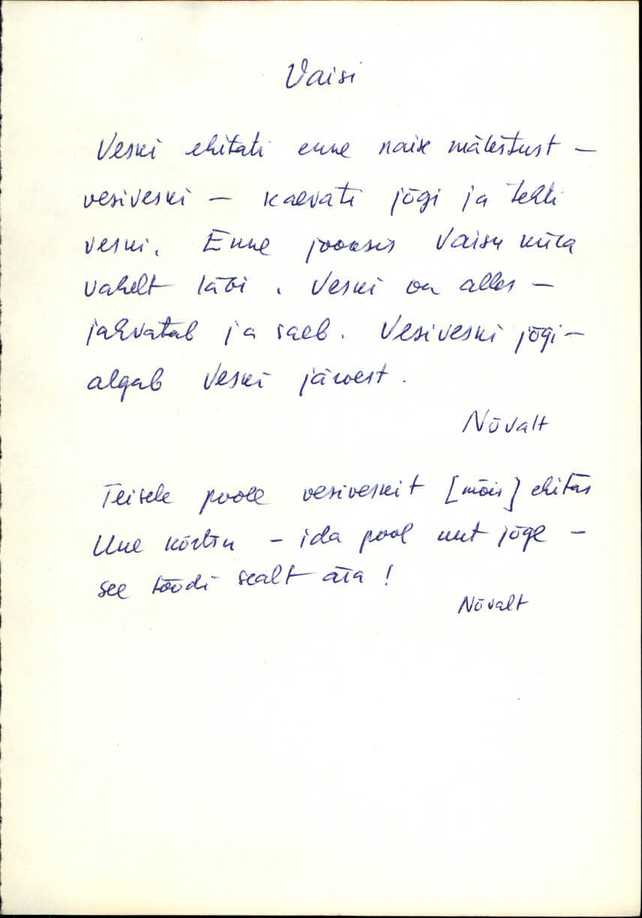 Vaisi
Veski ehitati enne naise mälestust –
vesiveski – kaevati jõgi ja tehti
veski. Enne jooksis Vaisu küla
vahelt läbi. Veski on alles –
jahvatab ja saeb. Vesiveski jõgi –
algab Veski järvest.
Nõvalt
Teisele poole vesiveskit [mõis] ehitas
Uue kõrtsu – ida pool uut jõge –
see toodi sealt ära!
Nõvalt